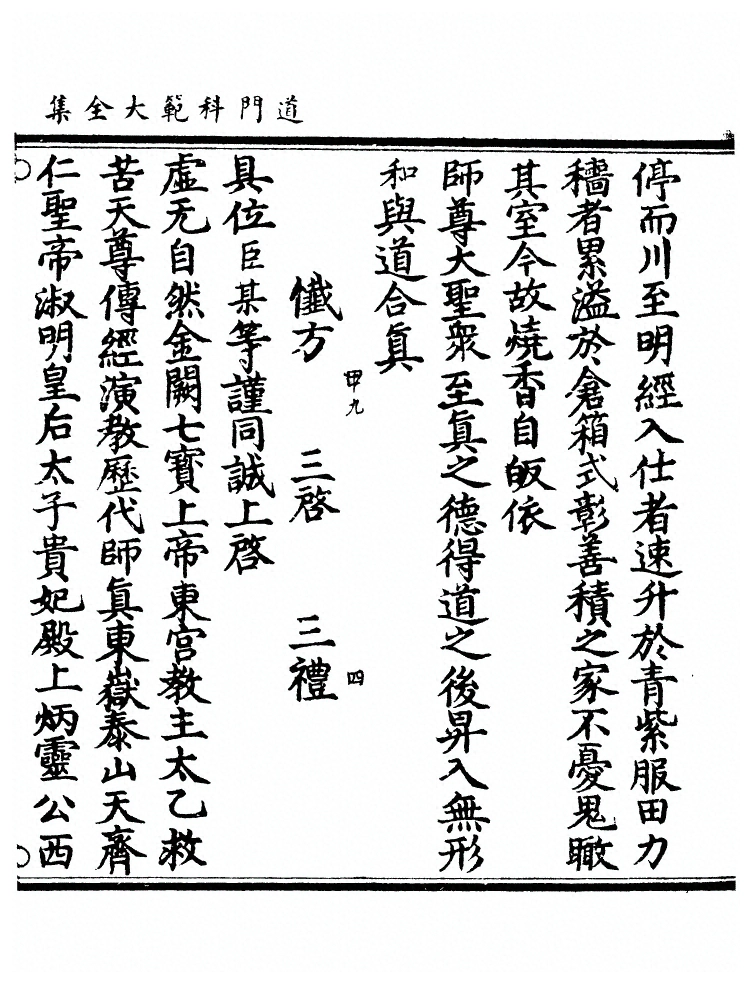 道門科範大全集
停而川至明經入仕者速升於青紫服田力
穡者累溢於倉箱式彰善積之家不憂鬼瞰
其室今故燒香自皈依
師尊大聖衆至真之德得道之後昇入無形
和與道合真
懺方 三啓 三禮
甲九 四
具位臣某等謹同誠上啓
虛无自然金闕七寶上帝東宮教主太乙救
苦天尊傳經演教歷代師真東嶽泰山天齊
仁聖帝淑明皇后太子貴妃殿上炳靈公西